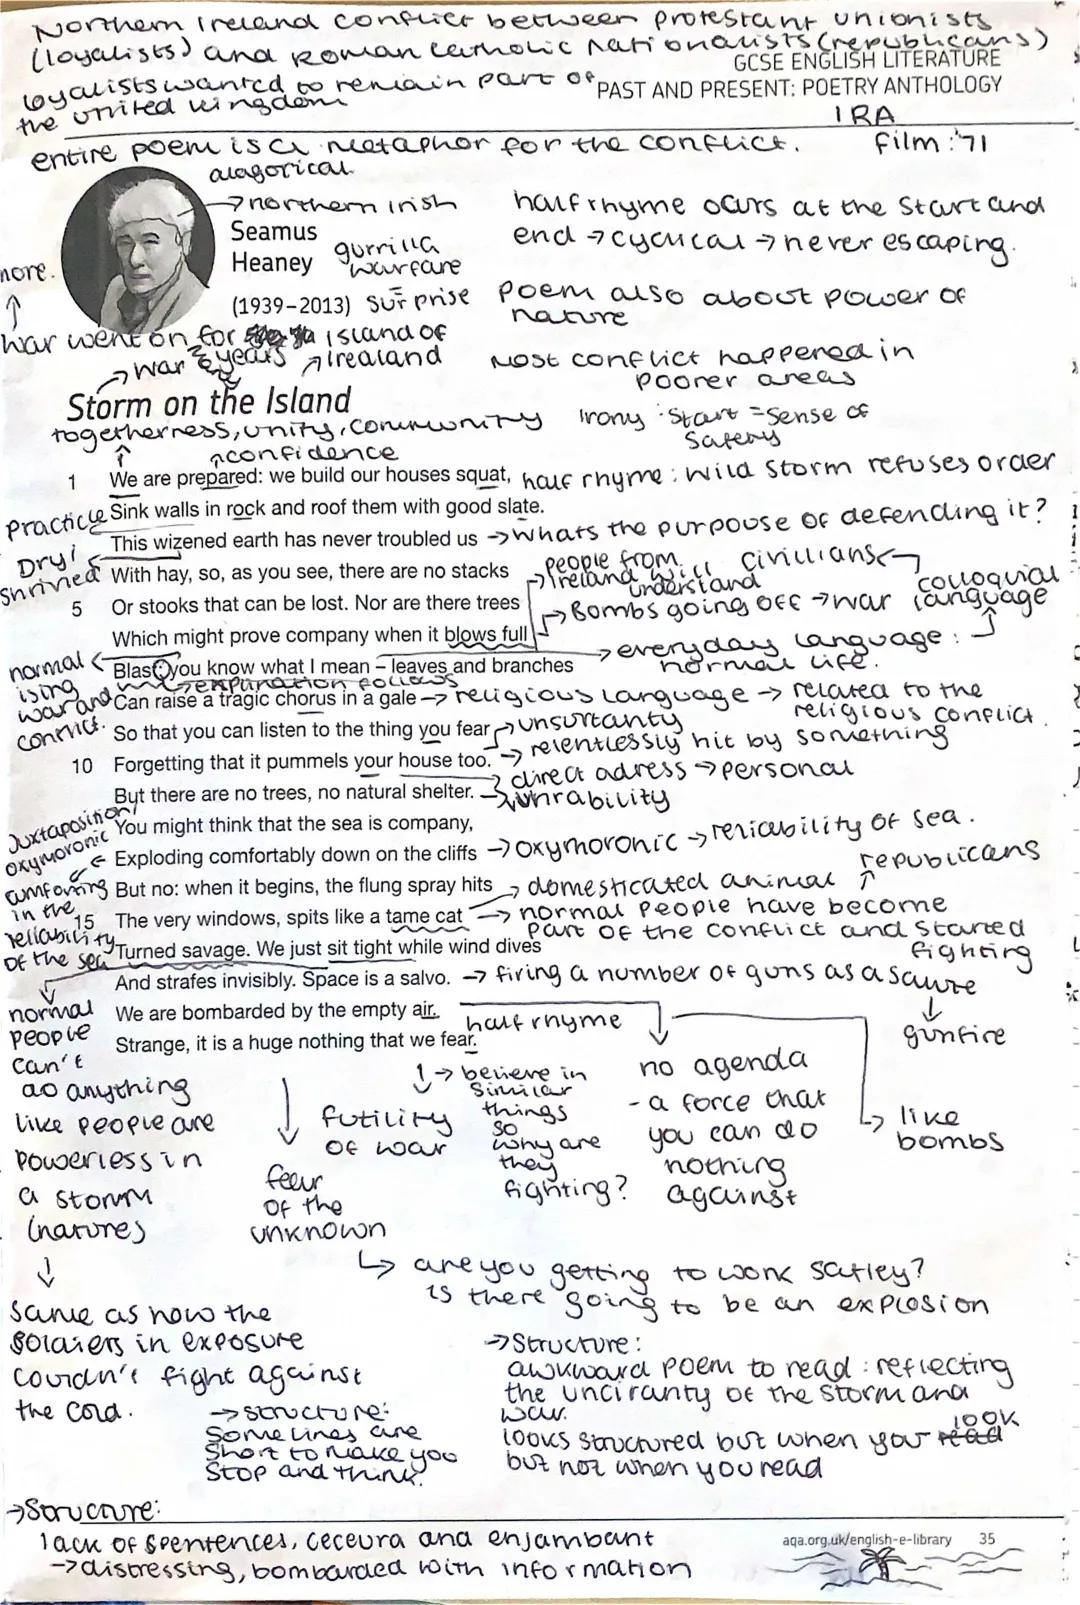 Northern Ireland conflict between protestant unionists
(loyalists) and Roman Catholic nationalists (republicans)
GCSE ENGLISH LITERATURE
loyalists wanted to remain part of
the united kingdom
PAST AND PRESENT: POETRY ANTHOLOGY
IRA
entire poem is a metaphor for the conflict.
film: '71
alagorical.
→ northern irish
Seamus
Heaney
gurrilla
warfare
(1939–2013)
surprise
half rhyme occurs at the start and
end → cyclical → never escaping.
poem also about power of
nature
more.
↑
war went on for
years
island of
Irealand
→ war
Most conflict happened in
poorer areas
Storm on the Island
togetherness, unity, community
Irony: Start = Sense of
safety
↑confidence
1 We are prepared: we build our houses squat,
half rhyme: wild storm refuses order
Sink walls in rock and roof them with good slate.
practicle
This wizened earth has never troubled us
→ whats the purpouse of defending it?
Dry/
shrivned
With hay, so, as you see, there are no stacks
people from
Ireland will
understand
civillians
5 Or stooks that can be lost. Nor are there trees
→ Bombs going off → war
colloquial
language
Which might prove company when it blows full
→ everyday language:
normal life.
normal
ising
war and
conflict.
Blast: you know what I mean – leaves and branches
→ explination follows
Can raise a tragic chorus in a gale
→ religious language → related to the
religious conflict.
So that you can listen to the thing you fear
→ unsurtanty
10 Forgetting that it pummels your house too.
→ relentlessly hit by something
→ direct adress → personal
But there are no trees, no natural shelter.
Juxtaposition/
oxymoronic
You might think that the sea is company,
Exploding comfortably down on the cliffs
→ oxymoronic → reliability of sea.
comforting
in the
reliability
of the sea
But no: when it begins, the flung spray hits
→ domesticated animal
republicans
15 The very windows, spits like a tame cat
→ normal people have become
part of the conflict and started
fighting
Turned savage. We just sit tight while wind dives
And strafes invisibly. Space is a salvo.
→ firing a number of guns as a
↓
gunfire
We are bombarded by the empty air.
half rhyme
Strange, it is a huge nothing that we fear.
normal
people
can't
do anything
like people are
powerless in
a storm
(nature)
↓
same as how the
soldiers in exposure
couldn't fight against
the cold.
fear
of the
unknown
futility
of war
→ believe in
similar
things
so
why are
they
fighting?
no agenda
- a force that
you can do
nothing
against
like
bombs
↳ are you getting to work safley?
is there going to be an explosion
→ structure:
some lines are
short to make you
stop and think.
→ Structure:
awkward poem to read: reflecting
the unciranty of the storm and
war.
looks structured but when you read look
but not when you read
→ Structure:
lack of spentences, ceceura and enjambant
→ distressing, bombarded with information
aqa.org.uk/english-e-library 35